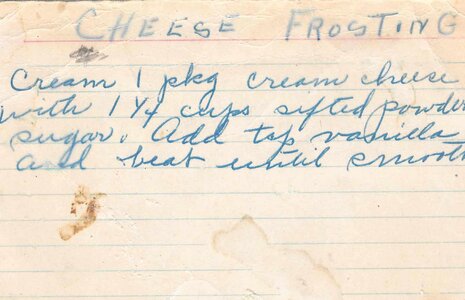 CHEESE FROSTING
Cream 1 pkg cream cheese
with 1 1/4 cups sifted powder
sugar. Add tsp vanilla
and beat until smooth